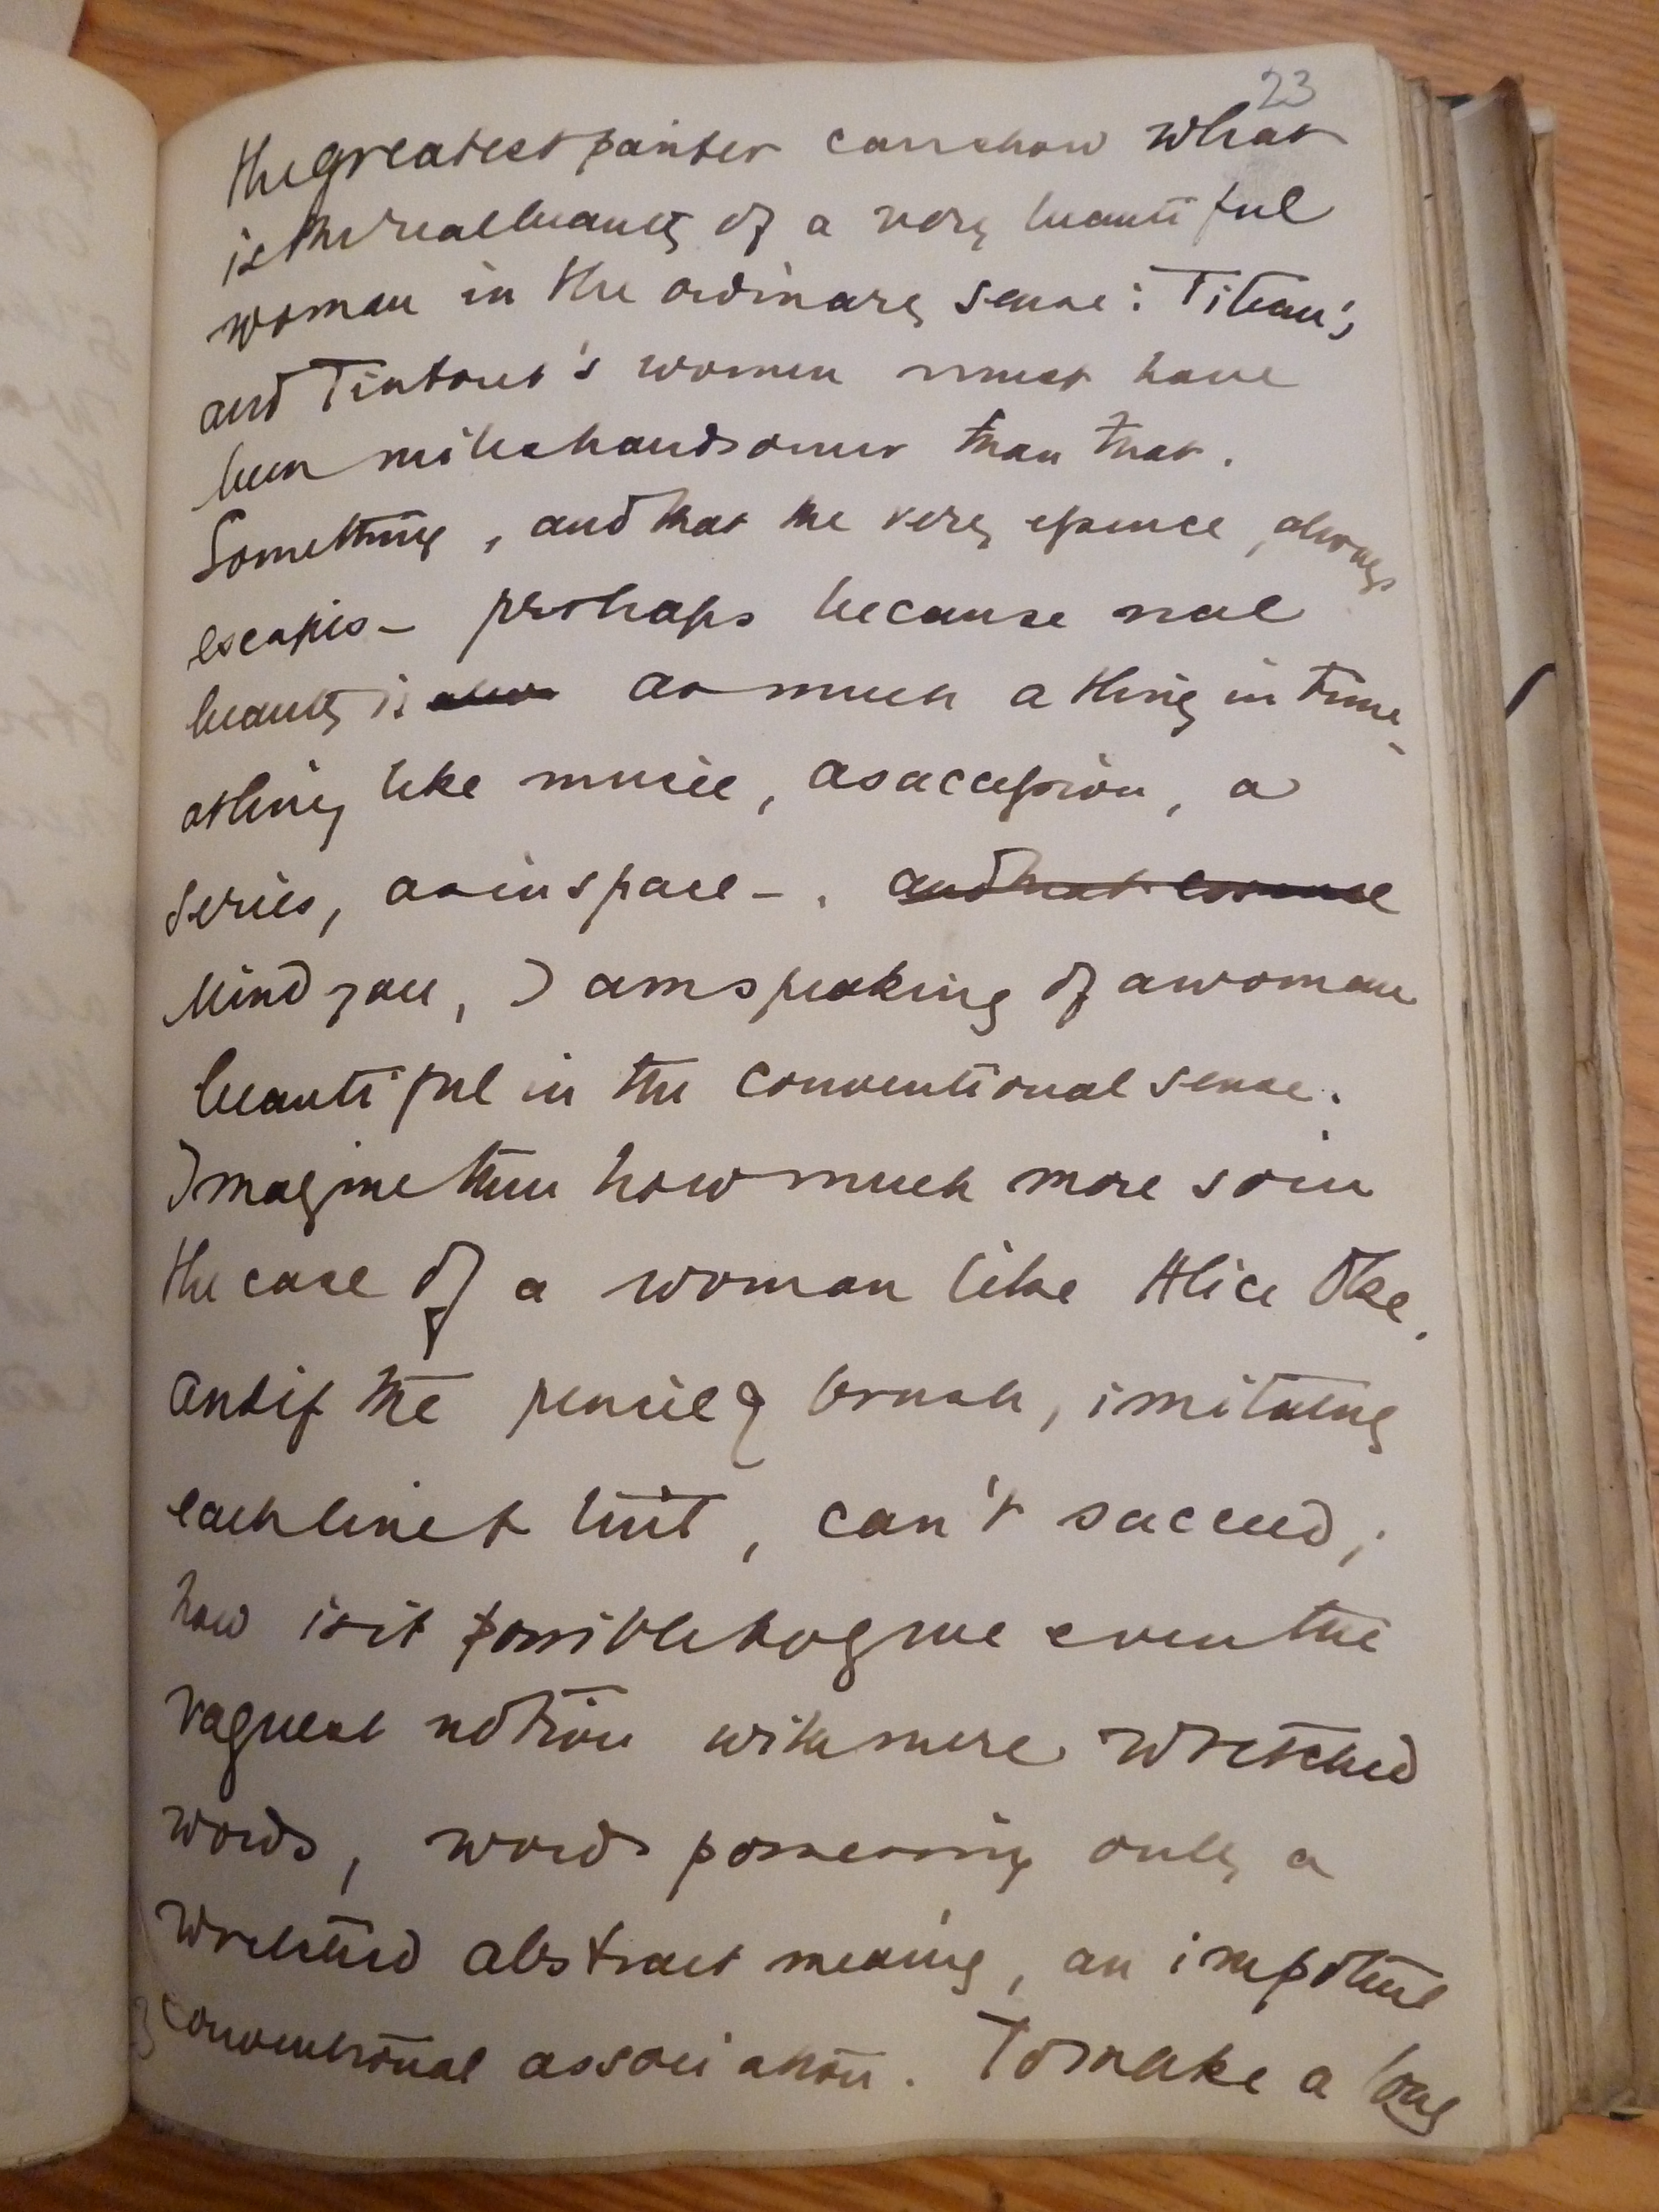 23
the greatest painter can show what
is the real beauty of a very beautiful
woman in the ordinary sense: Titian's
and Tintoret's women must have
been miles handsomer than that.
Something, and that the very essence, always
escapes – perhaps because real
beauty is as much a thing in time –
a thing like music, a succession, a
series, as in space –. and that essence
Mind you, I am speaking of a woman
beautiful in the conventional sense.
Imagine then how much more so in
the case of a woman like Alice Oke.
And if the pencil & brush, imitating
each line & tint, can't succeed;
how is it possible to give even the
vaguest notion with mere wretched
words, words possessing only a
wretched abstract meaning, an impotent
conventional association. To make a long